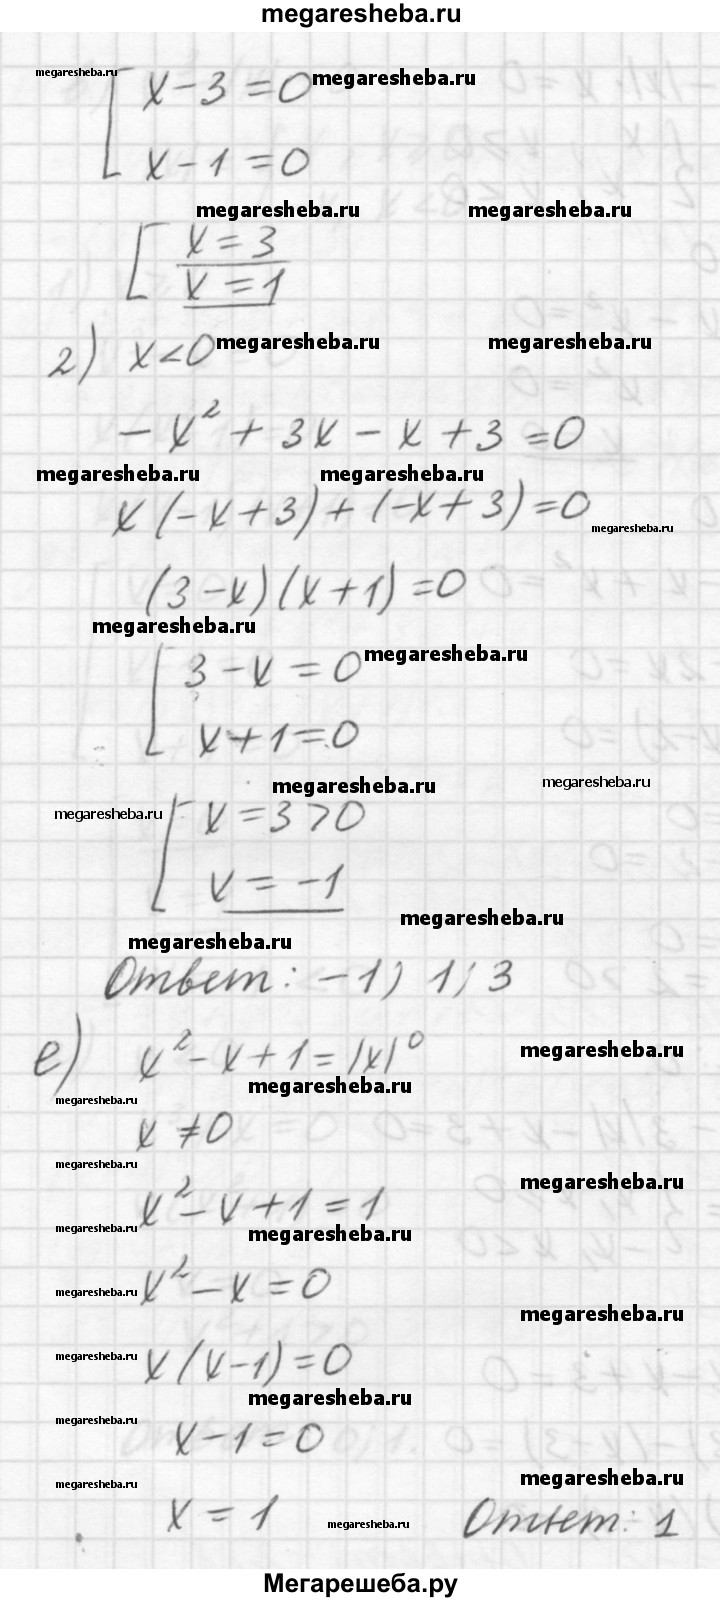 megaresheba.ru
megaresheba.ru
x - 3 = 0 megaresheba.ru
x - 1 = 0
megaresheba.ru megaresheba.ru
x = 3
x = 1
2) x < 0 megaresheba.ru megaresheba.ru
- x² + 3x - x + 3 = 0
megaresheba.ru megaresheba.ru
x (-x + 3) + (-x + 3) = 0 megaresheba.ru
(3 - x) (x + 1) = 0
megaresheba.ru
3 - x = 0 megaresheba.ru
x + 1 = 0
megaresheba.ru megaresheba.ru
megaresheba.ru x = 3 > 0
x = -1
megaresheba.ru
megaresheba.ru
Ответ: -1; 1; 3
е) x² - x + 1 = |x|⁰ megaresheba.ru
megaresheba.ru
megaresheba.ru
x ≠ 0
megaresheba.ru
megaresheba.ru
x² - x + 1 = 1
megaresheba.ru megaresheba.ru
megaresheba.ru x² - x = 0
megaresheba.ru
megaresheba.ru x (x - 1) = 0
megaresheba.ru
megaresheba.ru
x - 1 = 0
megaresheba.ru
megaresheba.ru
x = 1 megaresheba.ru Ответ: 1
Мегарешеба.ру